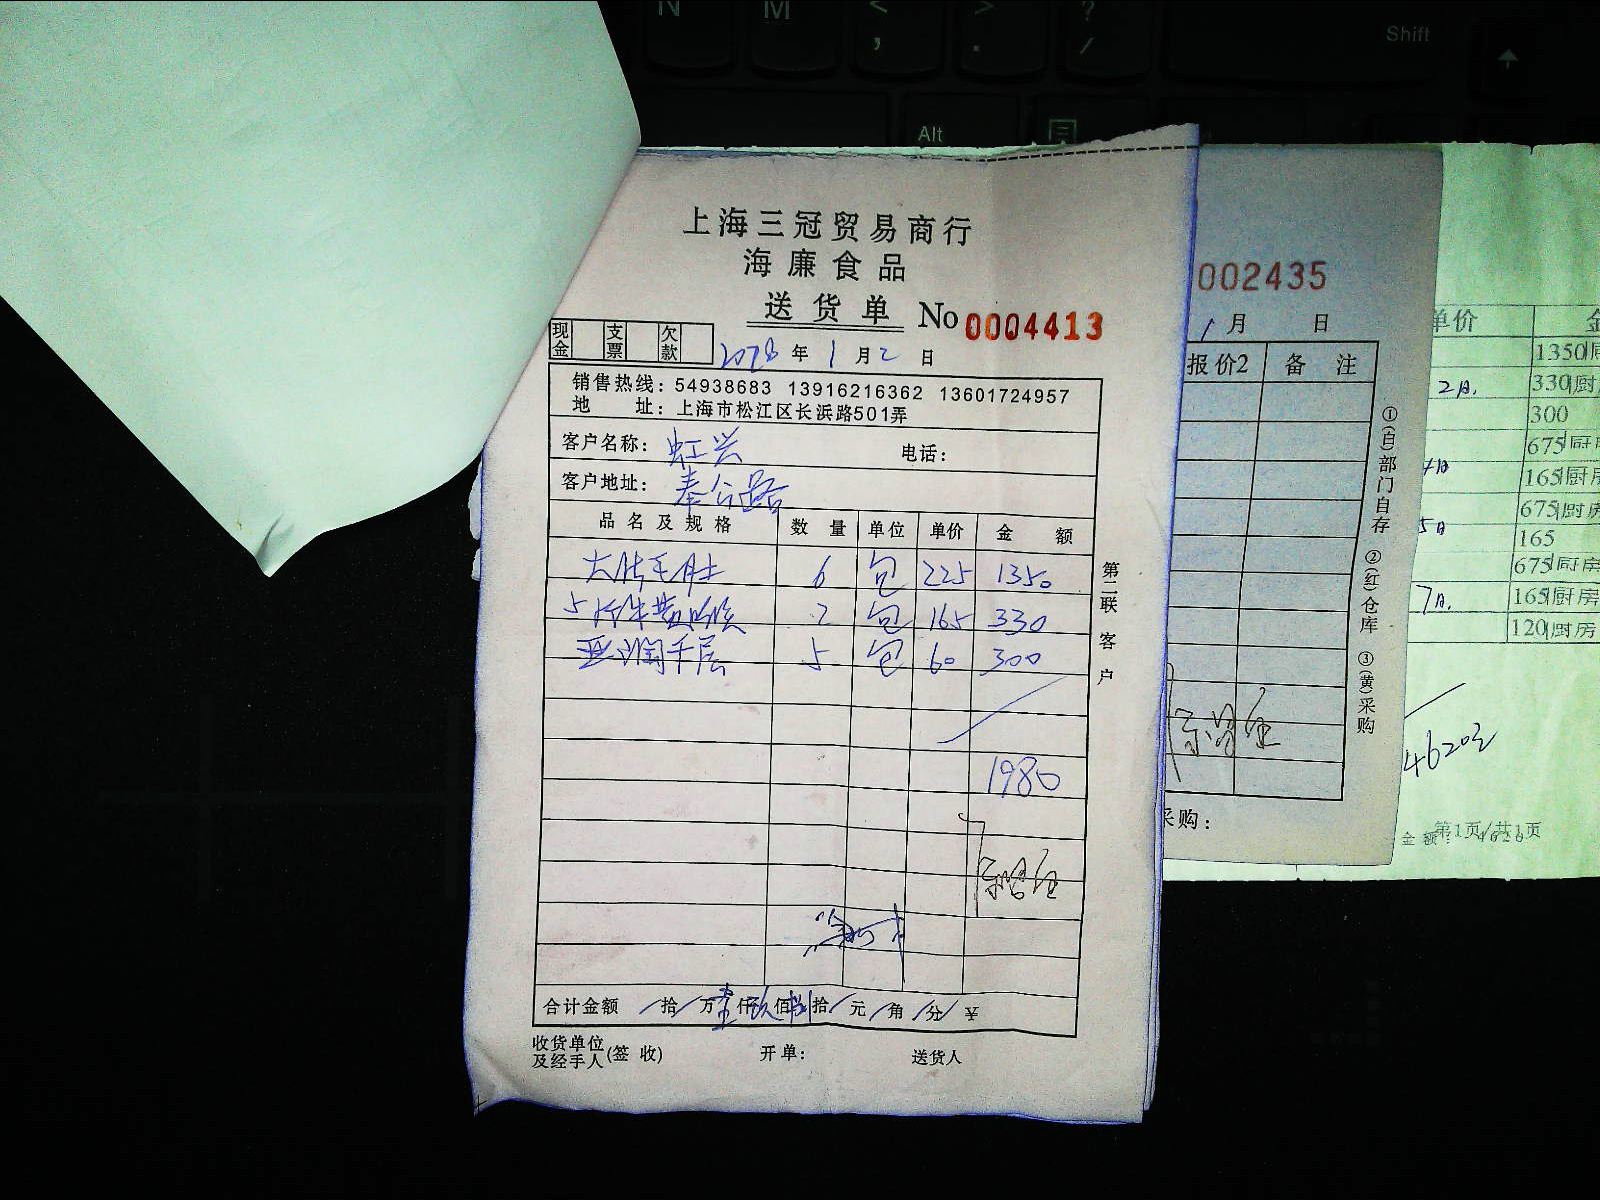 N M < , > . ? / Shift
Alt
上海三冠贸易商行
海廉食品
送货单 No 0004413
现金 支票 欠款
2018 年 1 月 2 日
销售热线：54938683 13916216362 13601724957
地 址：上海市松江区长浜路501弄
客户名称：虹兴 电话：
客户地址：奉公路
品名及规格 数量 单位 单价 金额
大片毛肚 6 包 225 1350
5斤牛黄喉 2 包 165 330
千层 5 包 60 300
1980
合计金额 拾 万 壹 仟 玖 佰 捌 拾 元 角 分 ￥
收货单位及经手人(签收) 开单： 送货人
第二联 客户
002435
1 月 日
报价2 备注
①(白)部门自存 ②(红)仓库 ③(黄)采购
采购：
单价 金
1350 厨
2日. 330 厨
300
675 厨房
165 厨房
675 厨房
5日 165
675 厨房
7日. 165 厨房
120 厨房
4620元
第1页/共1页
金额： 4620